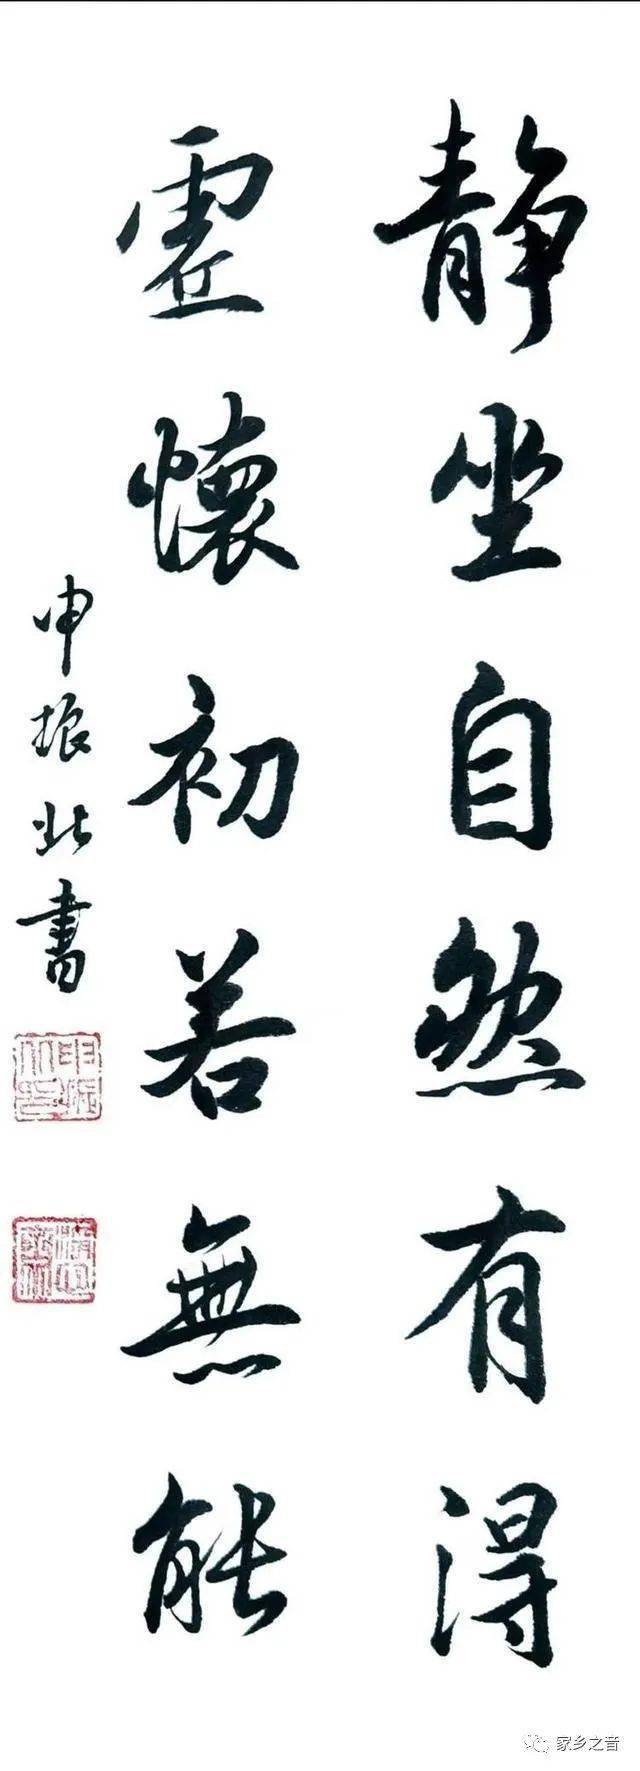 靜坐自然有得
虛懷初若無能
申振北書
家乡之音